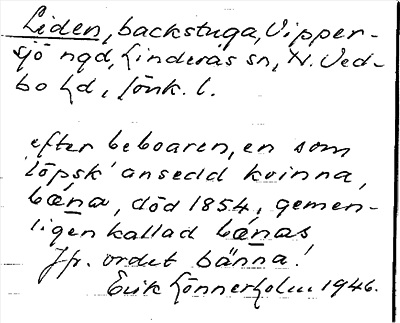 Liden, backstuga, Vipper-
sjö ngd, Linderås sn, N. Ved-
bo hd, Jönk. l.
efter beboaren, en som
'löpsk' ansedd kvinna,
bœ́na, död 1854, gemen-
ligen kallad bœ́nas
Jfr. ordet bänna!
Erik Lönnerholm 1946.